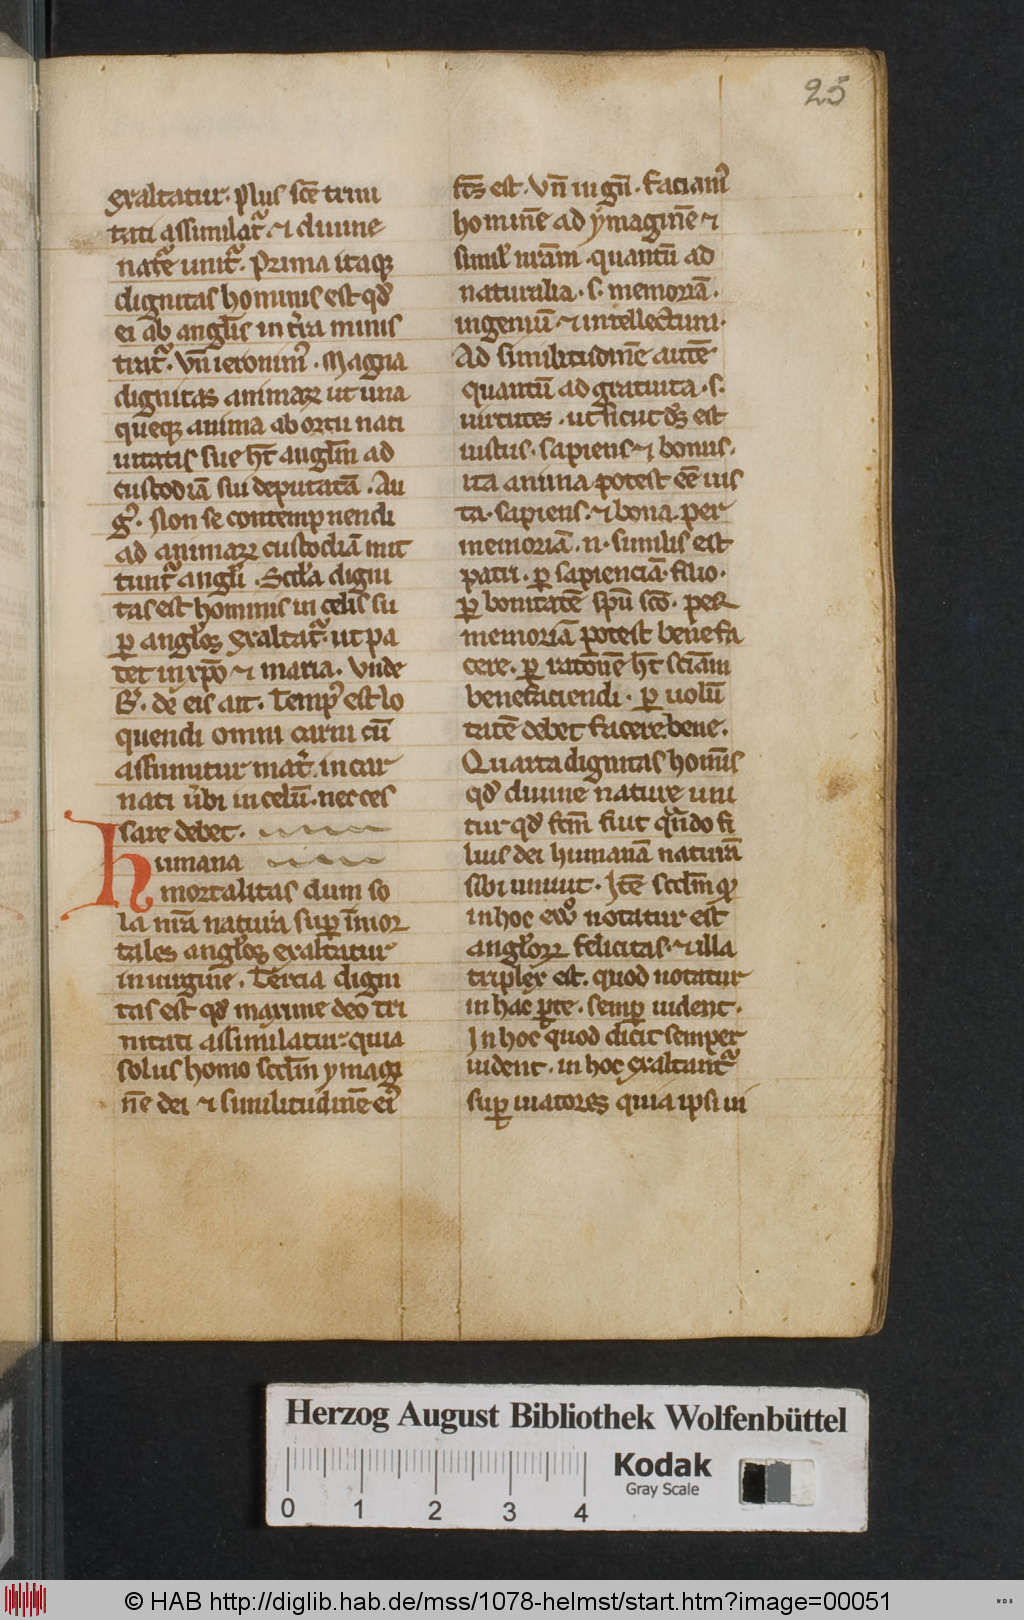 25
exaltatur. plus sc̄e trini
tati assimilat᷑. ⁊ diuine
nat̄e unit᷑. Prima itaqꝫ
dignitas hominis est qd̓
ei ab angl̓is in t̓ra minis
trat᷑. vn̄ ieronim᷒. Magna
dignitas animaꝝ ut una
queqꝫ anima ab ortu nati
uitatis sue h̄t angl̓m ad
custodiā sui deputatā. Au
g᷒. Non se contempnendi
ad animaꝝ custodiā mit
tunt᷑ angl̓i. Scd̓a digni
tas est hominis in celis su
ꝑ angl̓os exaltat᷑. ut pa
tet in xp̄o ⁊ maria. vnde
B᷒. de eis ait. Temp᷒ est lo
quendi omni carni cū
assumitur mat̓ incar
nati ū̓bi in celū. nec ces
sare debet.
humana
mortalitas dum so
la nr̄a natura suꝑ īmor
tales angl̓os exaltatur
in uirgine. Tercia digni
tas est qd̓ maxime deo tri
nitati assimilatur. quia
solus homo sccl̄m ymagi
nē dei ⁊ similitudinē ei᷒
fc̄s est. vn̄ in gn̄. faciam᷒
hominē ad ymaginē ⁊
simil̓ nr̄am. quantū ad
naturalia. s. memoriā.
ingeniū. ⁊ intellectum.
Ad similitudinē autē
quantū ad gratuita. s.
uirtutes. ut sicut ds̄ est
iustus. sapiens ⁊ bonus.
ita anima potest eē ius
ta. sapiens. ⁊ bona. per
memoriā. n. similis est
patri. ꝑ sapienciā. filio.
ꝑ bonitatē spū sc̄o. per
memoriā potest bene fa
cere. ꝑ rat̓onē h̄t sciam̄
benefaciendi. ꝑ uolū
tatē debet facere bene.
Quarta dignitas homīs
qd̓ diuine nature uni
tur qd̓ fc̄m fuit qn̄do fi
lius dei humanā naturā
sibi uniuit. Itē sccl̄m qd̓
in hoc notatur est
angl̓oꝝ felicitas. ⁊ illa
triplex est. quod notatur
in hac ꝑte. semꝑ uident.
In hoc quod dicit semper
uident. in hoc exaltant᷑
suꝑ uiatores quia ipsi ui
Herzog August Bibliothek Wolfenbüttel
0 1 2 3 4
Kodak
Gray Scale
© HAB http://diglib.hab.de/mss/1078-helmst/start.htm?image=00051